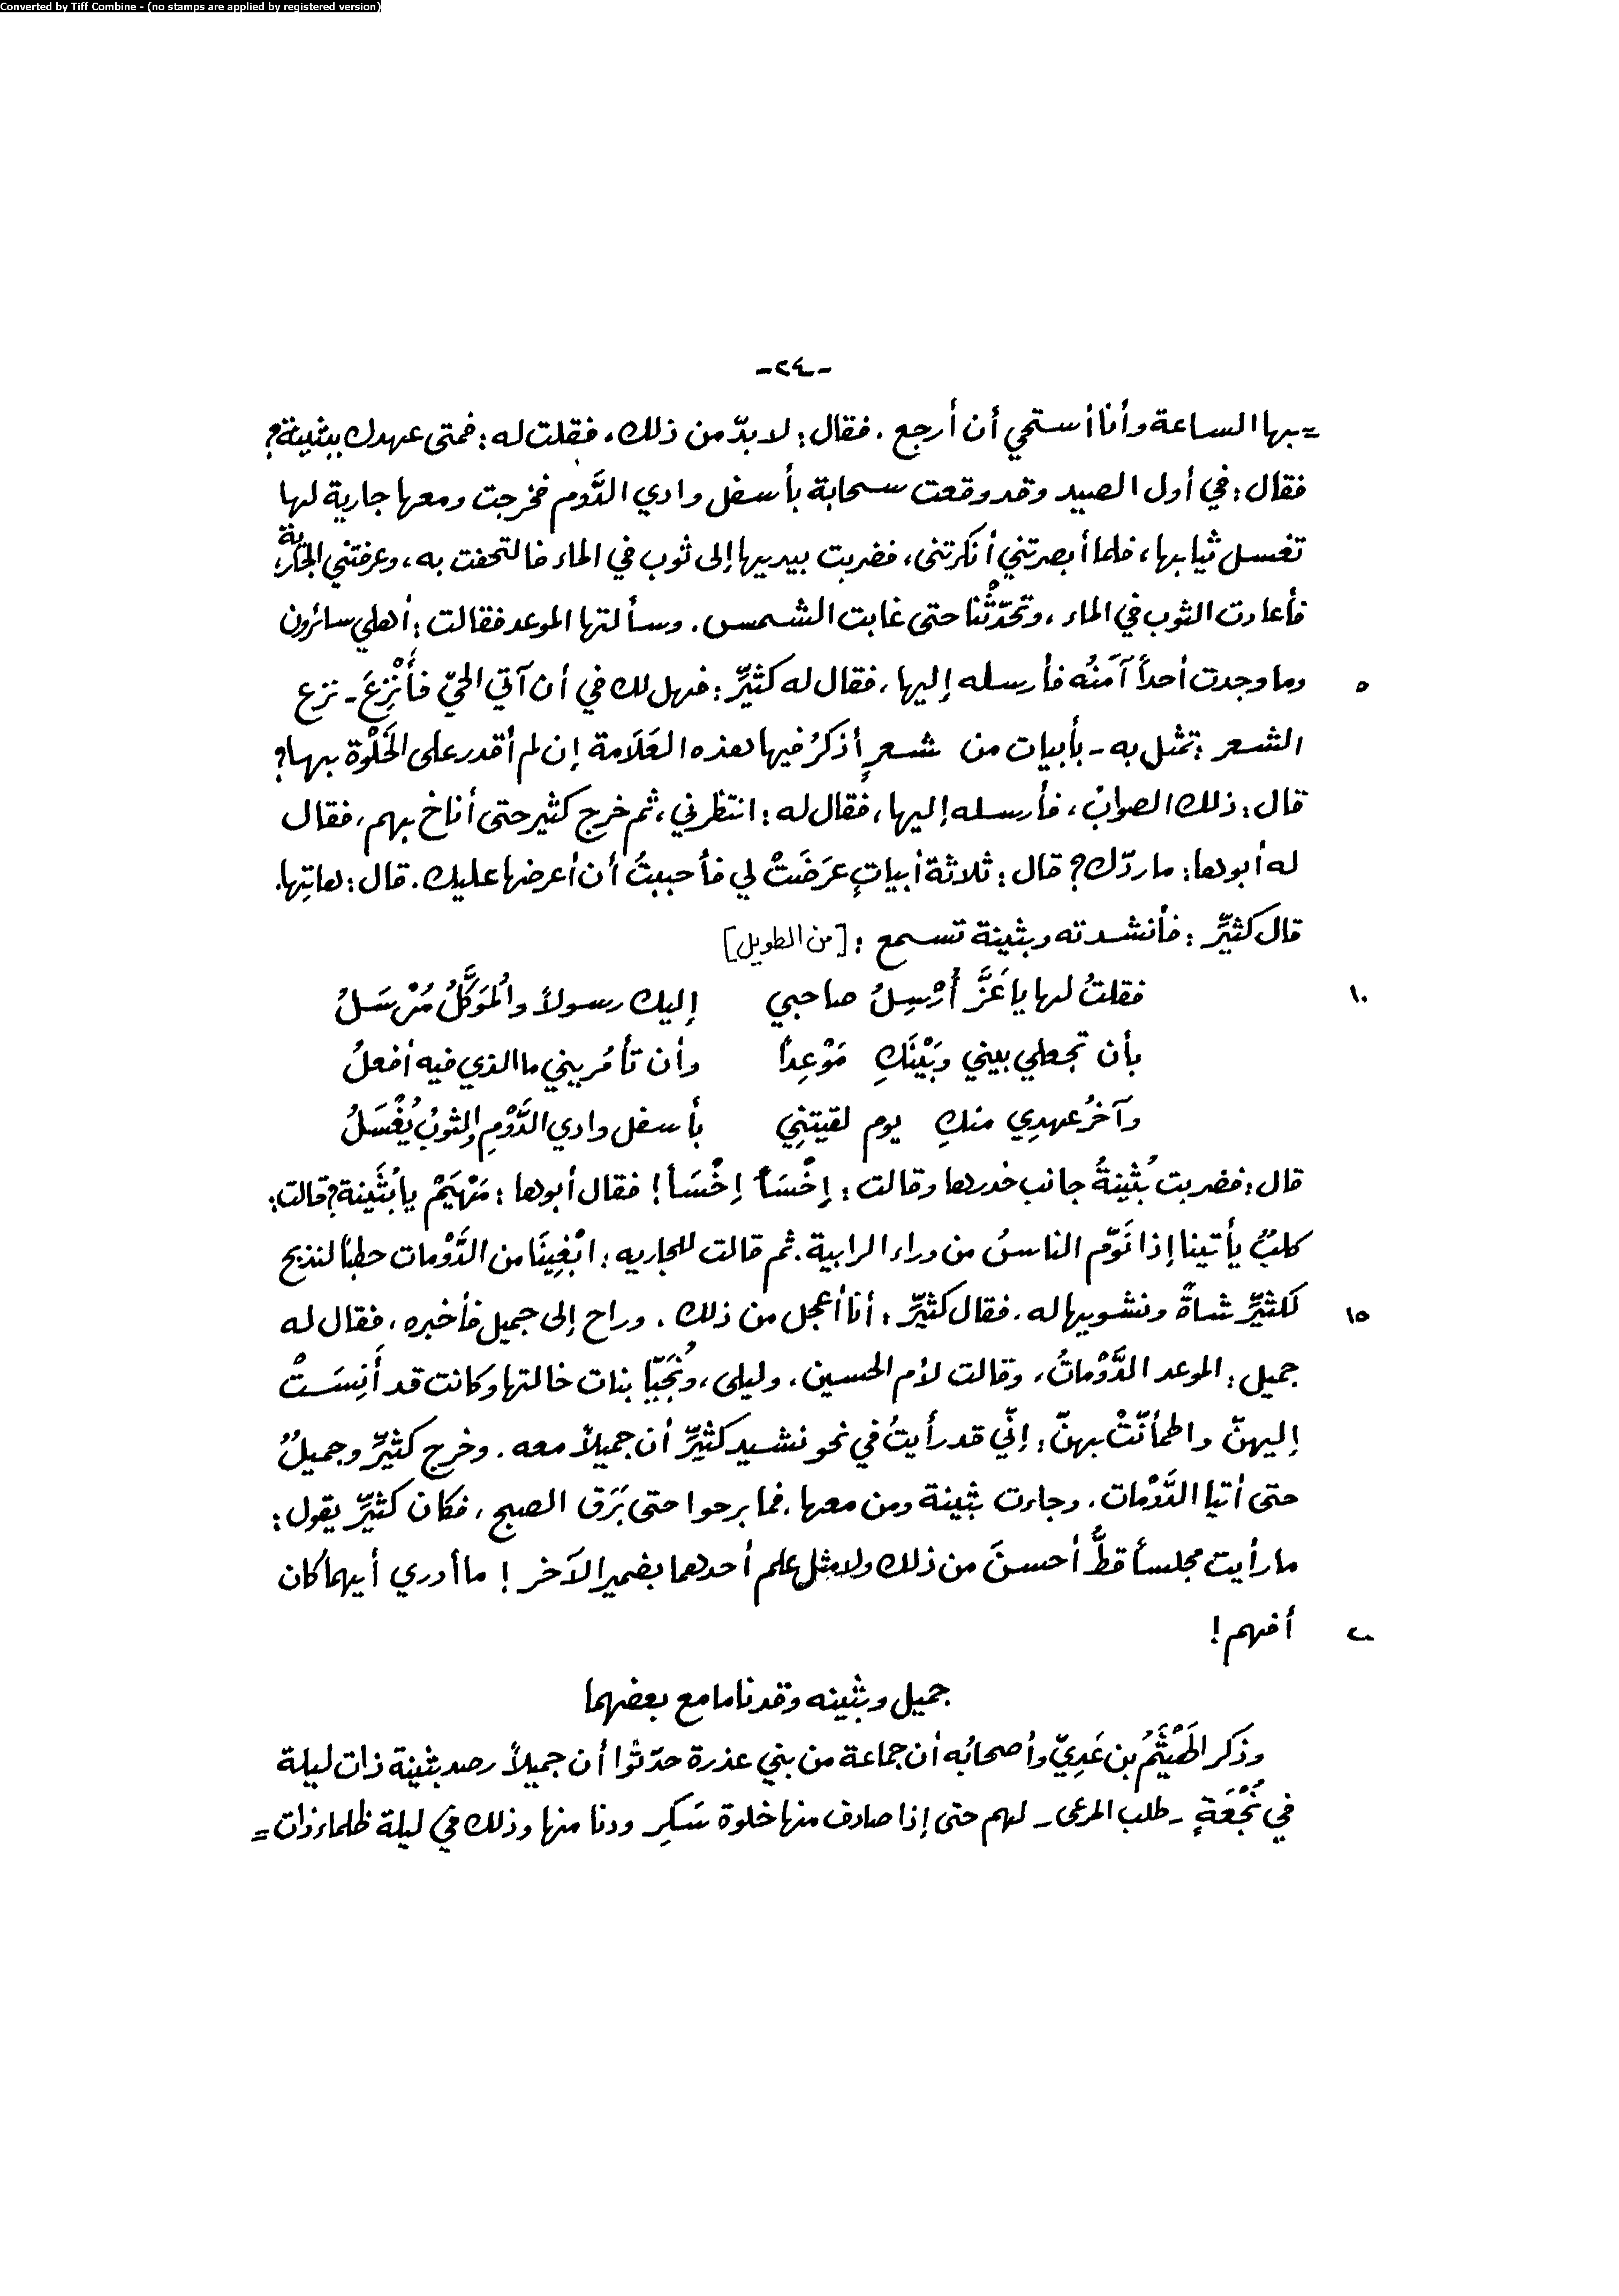 Converted by Tiff Combine - (no stamps are applied by registered version)
-٢٤-
= بها الساعة وأنا أستحي أن أرجع. فقال: لا بدّ من ذلك، فقلت له: فمتى عهدك ببثينة؟
فقال: في أول الصيد وقد وقعت سحابة بأسفل وادي الدَّوم فخرجت ومعها جارية لها
تغسل ثيابها، فلما أبصرتني أنكرتني، فضربت بيديها إلى ثوب في الماء فالتحفت به، وعرفتني الجارية
فأعادت الثوب في الماء، وتحدّثْنا حتى غابت الشمس. وسألتها الموعد فقالت: أهلي سائرون
٥ وما وجدت أحداً آمَنُه فأرسله إليها، فقال له كثيِّر: فهل لك في أن آتي الحيّ فأَنْزِعَ - نزع
الشعر: تمثل به - بأبيات من شعرٍ أذكرُ فيها هذه العَلَامة إن لم أقدر على الخَلْوة بها؟
قال: ذلك الصوابُ، فأرسله إليها، فقال له: انتظرني، ثم خرج كثير حتى أناخ بهم، فقال
له أبوها: ما ردّك؟ قال: ثلاثة أبياتٍ عَرَضَتْ لي فأحببتُ أن أعرضها عليك. قال: هاتِها.
قال كثيِّر: فأنشدته وبثينة تسمع: [من الطويل]
١٠ فقلتُ لها يا عَزَّ أُرْسِلُ صاحبي إليك رسولاً والمُوَكَّلُ مُرْسَلُ
بأن تجعلي بيني وَبَيْنَكِ مَوْعِداً وأن تأمُريني ما الذي فيه أفعلُ
وآخرُ عهدِي منكِ يوم لقيتنِي بأسفل وادي الدَّوْمِ والثوبُ يُغْسَلُ
قال: فضربت بُثينةُ جانب خدرها وقالت: إخْسَأ إخْسَأ! فقال أبوها: مَهْيَمْ يا بُثَينة؟ قالت:
كلبٌ يأتينا إذا نَوّم الناسُ من وراء الرابية. ثم قالت للجاريه: ابْغِينَا من الدَّوْمات حطباً لنذبح
١٥ لكثيِّر شاةً ونشويها له. فقال كثيِّر: أنا أعجل من ذلك. وراح إلى جميل فأخبره، فقال له
جميل: الموعد الدَّوْماتُ، وقالت لأم الحسين، وليلى، ونُجَيّا بنات خالتها وكانت قد أَنِسَتْ
إليهنّ واطمأنّتْ بهنّ: إنّي قد رأيتُ في نحو نشيد كثيِّر أن جميلاً معه. وخرج كثيِّر وجميلٌ
حتى أتيا الدَّوْمات. وجاءت بثينة ومن معها. فما برحوا حتى بَرَق الصبح، فكان كثيِّر يقول:
ما رأيت مجلساً قطُّ أحسنَ من ذلك ولا مثل علم أحدهما بضمير الآخر! ما أدري أيهما كان
٢٠ أفهم!
جميل وبثينه وقد ناما مع بعضهما
وذكر الهَيْثَمُ بن عَدِيّ وأصحابُه أن جماعة من بني عذرة حدّثوا أن جميلاً رصد بثينة ذات ليلة
في نُجْعَةٍ - طلب المرعى - لهم حتى إذا صادف منها خلوة سَكِر ودنا منها وذلك في ليلة ظلماء ذات =